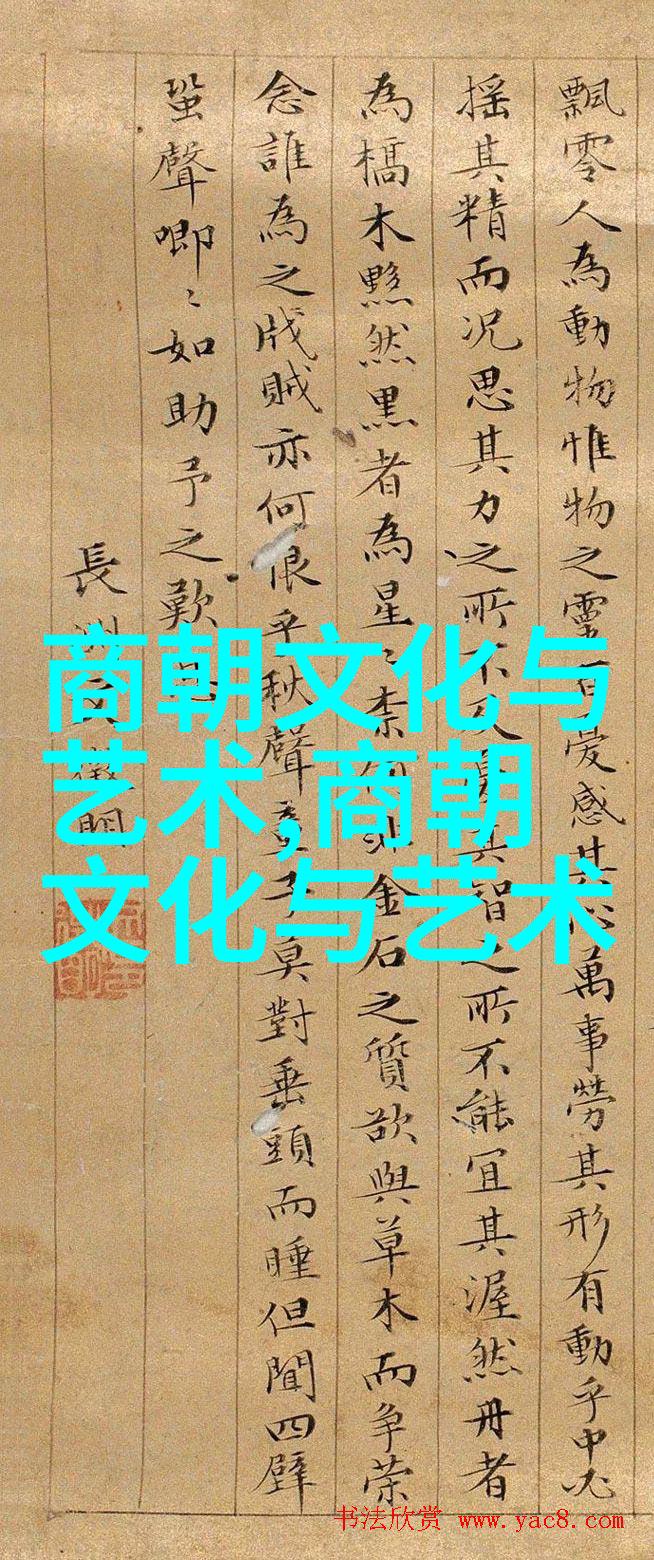 飄零人為動物惟物之靈百憂感其心萬事勞其形有動乎中必
摇其精而况思其力之所不及憂其智之所不能宜其渥然丹者
為槁木黟然黒者為星〻柰何非金石之質欲與草木而争荣
念誰為之戕賊亦何恨乎秋聲童子莫對垂頭而睡但聞四壁
蛩聲唧〻如助予之歎息
長洲文徵明
商朝文化与
艺术,商朝
文化与艺术
书法欣赏 www.yac8.com